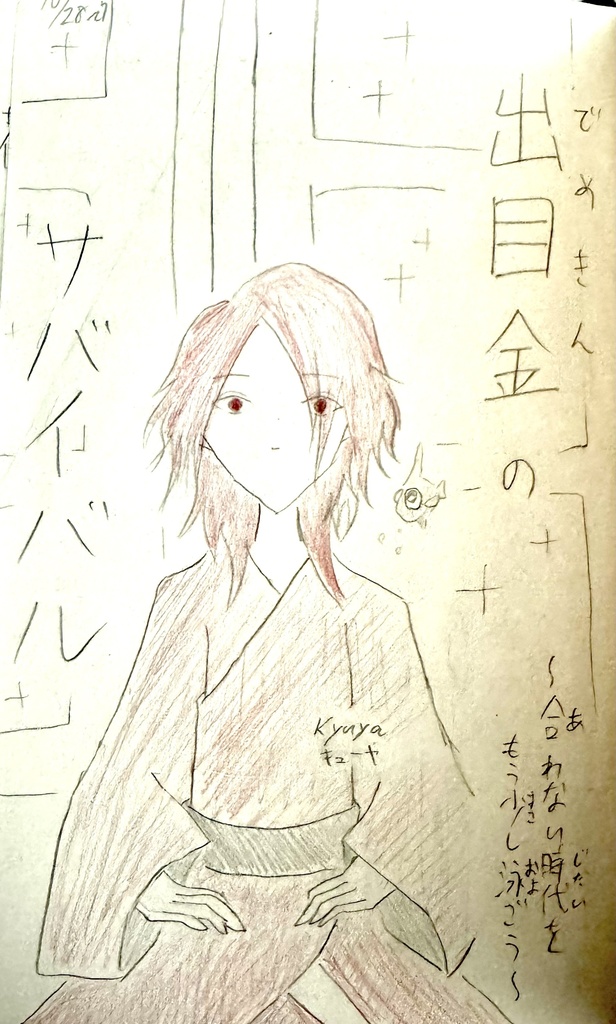 10/28
でめきん
出目金の
サバイバル
Kyuya
キューヤ
あ じだい
～合わない時代を
すこ およ
もう少し泳ごう～